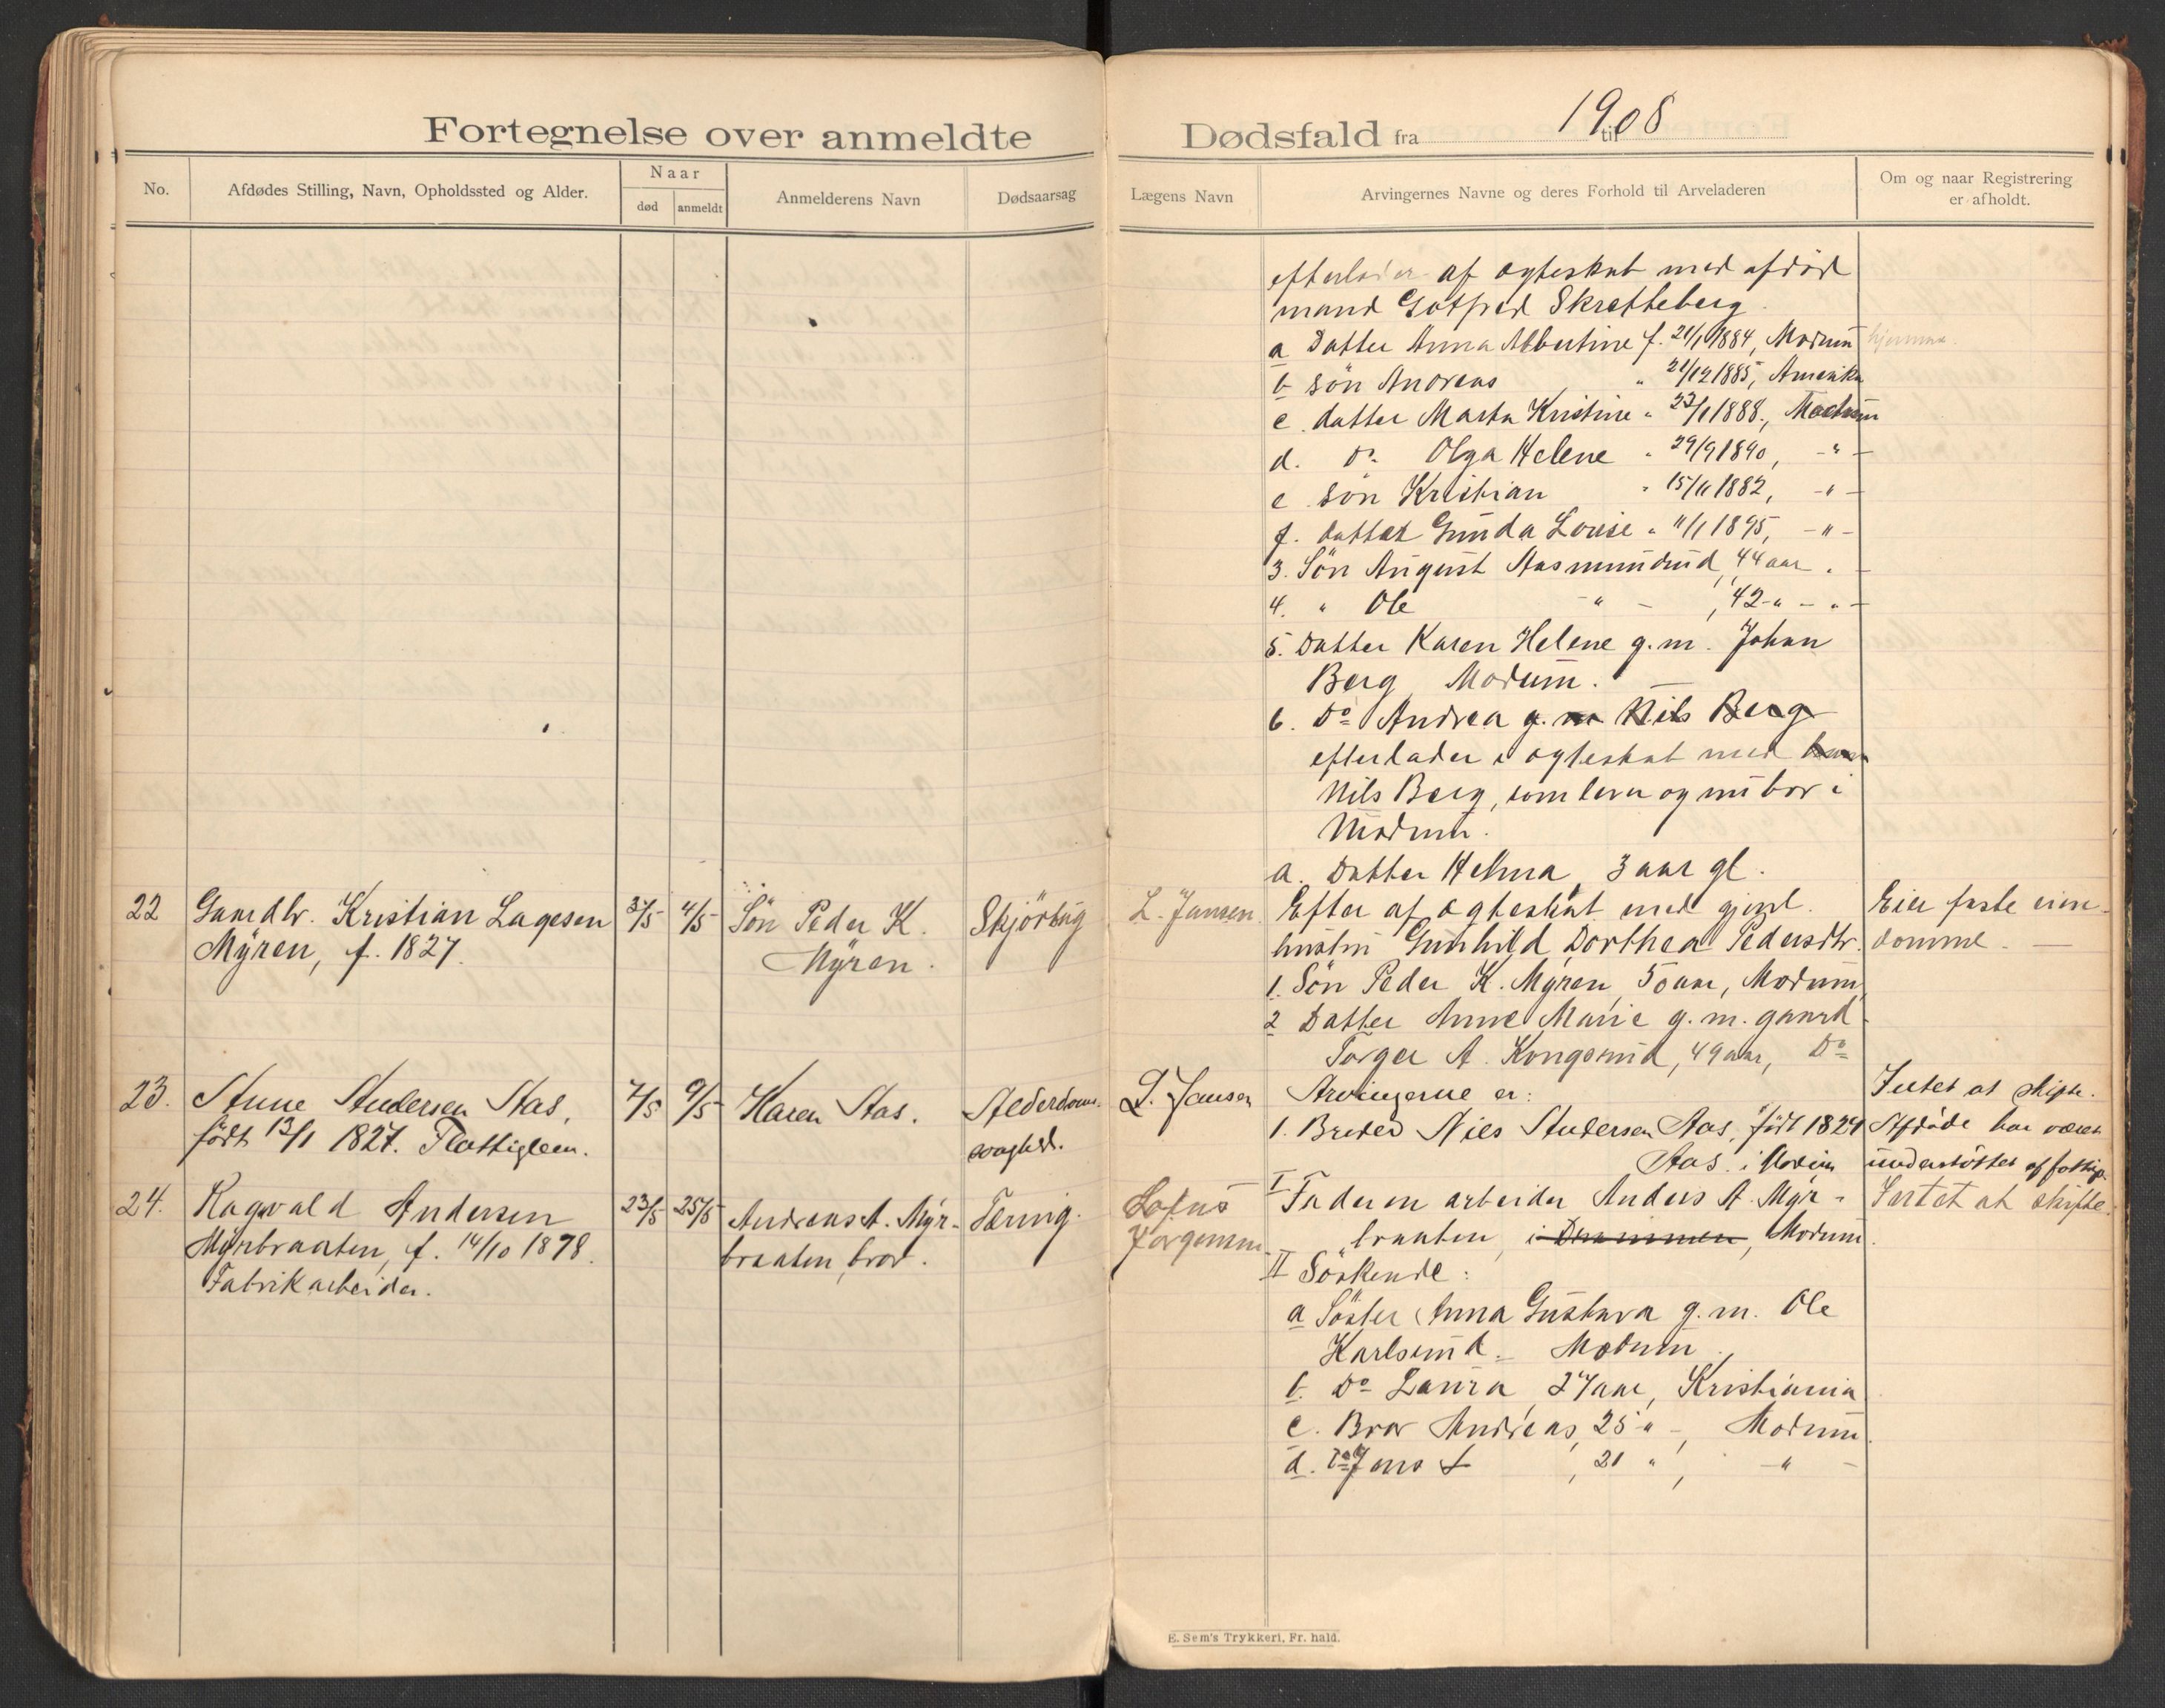 Fortegnelse over anmeldte Dødsfald fra 1908 til
No.
Afdødes Stilling, Navn, Opholdssted og Alder.
Naar
død
anmeldt
Anmelderens Navn
Dødsaarsag
Lægens Navn
Arvingernes Navne og deres Forhold til Arveladeren
Om og naar Registrering
er afholdt.
efterlader af ægteskab med afdød
mand Gotfred Skretteberg.
a Datter Anna Albertine f. 21/1 1884, Modum hjemme.
b søn Andreas " 21/12 1885, Amerika
c. datter Marta Kristine " 23/1 1888., Modum
d. do. Olga Helene " 29/9 1890, - " -
e søn Kristian " 15/11 1882, - " -
f. datter Gunda Louise " 11/1 1895, - " -
3. Søn August Aasmundrud, 44 aar " -
4. " Ole - " - , 42 - " - " -
5. Datter Karen Helene g.m. Johan
Berg, Modum.
6. Do Andrea g. m Nils Berg
efterlader i ægteskab med
Nils Berg, som lever og nu bor i
Modum.
a. Datter Helma, 3 aar gl.
22
Gaardbr. Kristian Lagesen
Myren, f. 1827.
3/5
4/5
Søn Peder K.
Myren.
Skjørbug
L. Jansen.
Efter af ægteskab med gjenl.
hustru Gunhild Dorthea Pedersdtr.
1. Søn Peder K. Myren, 50 aar, Modum,
2 Datter Anne Marie g.m. gaard
Torger A. Kongsrud, 49 aar, Do
Eier faste eien-
domme. —
23.
Anne Andersen Aas,
født 13/1 1827. Fattiglem.
7/5
9/5
Karen Aas.
Alderdoms-
svaghed.
L. Jansen
Arvingerne er:
1. Broder Niels Andersen Aas, født 1824
Aas i Modum
Intet at skifte.
Afdøde har været
understøttet af fattigv.
24.
Ragvald Andersen
Myrbraaten, f. 14/10 1878.
Fabrikarbeider.
23/5
25/5
Andreas A. Myr-
braaten, bror.
Tæring.
Lofus
Jørgensen
I Faderen arbeider Anders A. Myr-
braaten, i Drammen, Modum
II Søskende:
a Søster Anna Gustava g.m. Ole
Karlsrud. Modum.
b. Do Laura, 27 aar, Kristiania
c. Bror Andreas, 25 " -, Modum.
d. Do Jens A , 21 " , - " -
Intet at skifte.
E. Sem's Trykkeri, Fr. hald.